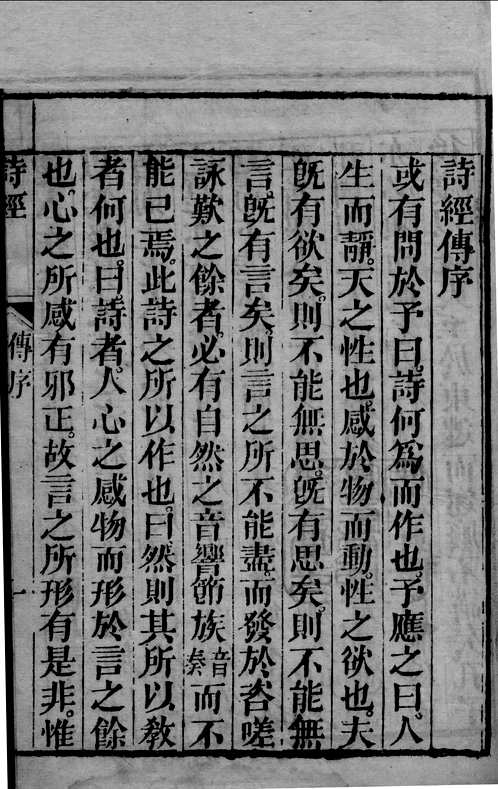 詩經傳序
或有問於予曰。詩何爲而作也。予應之曰。人
生而靜。天之性也。感於物而動。性之欲也。夫
旣有欲矣。則不能無思。旣有思矣。則不能無
言。旣有言矣。則言之所不能盡。而發於咨嗟
詠歎之餘者。必有自然之音響節族音奏而不
能已焉。此詩之所以作也。曰。然則其所以教
者何也。曰。詩者。人心之感物而形於言之餘
也。心之所感有邪正。故言之所形有是非。惟
詩經
傳序
一